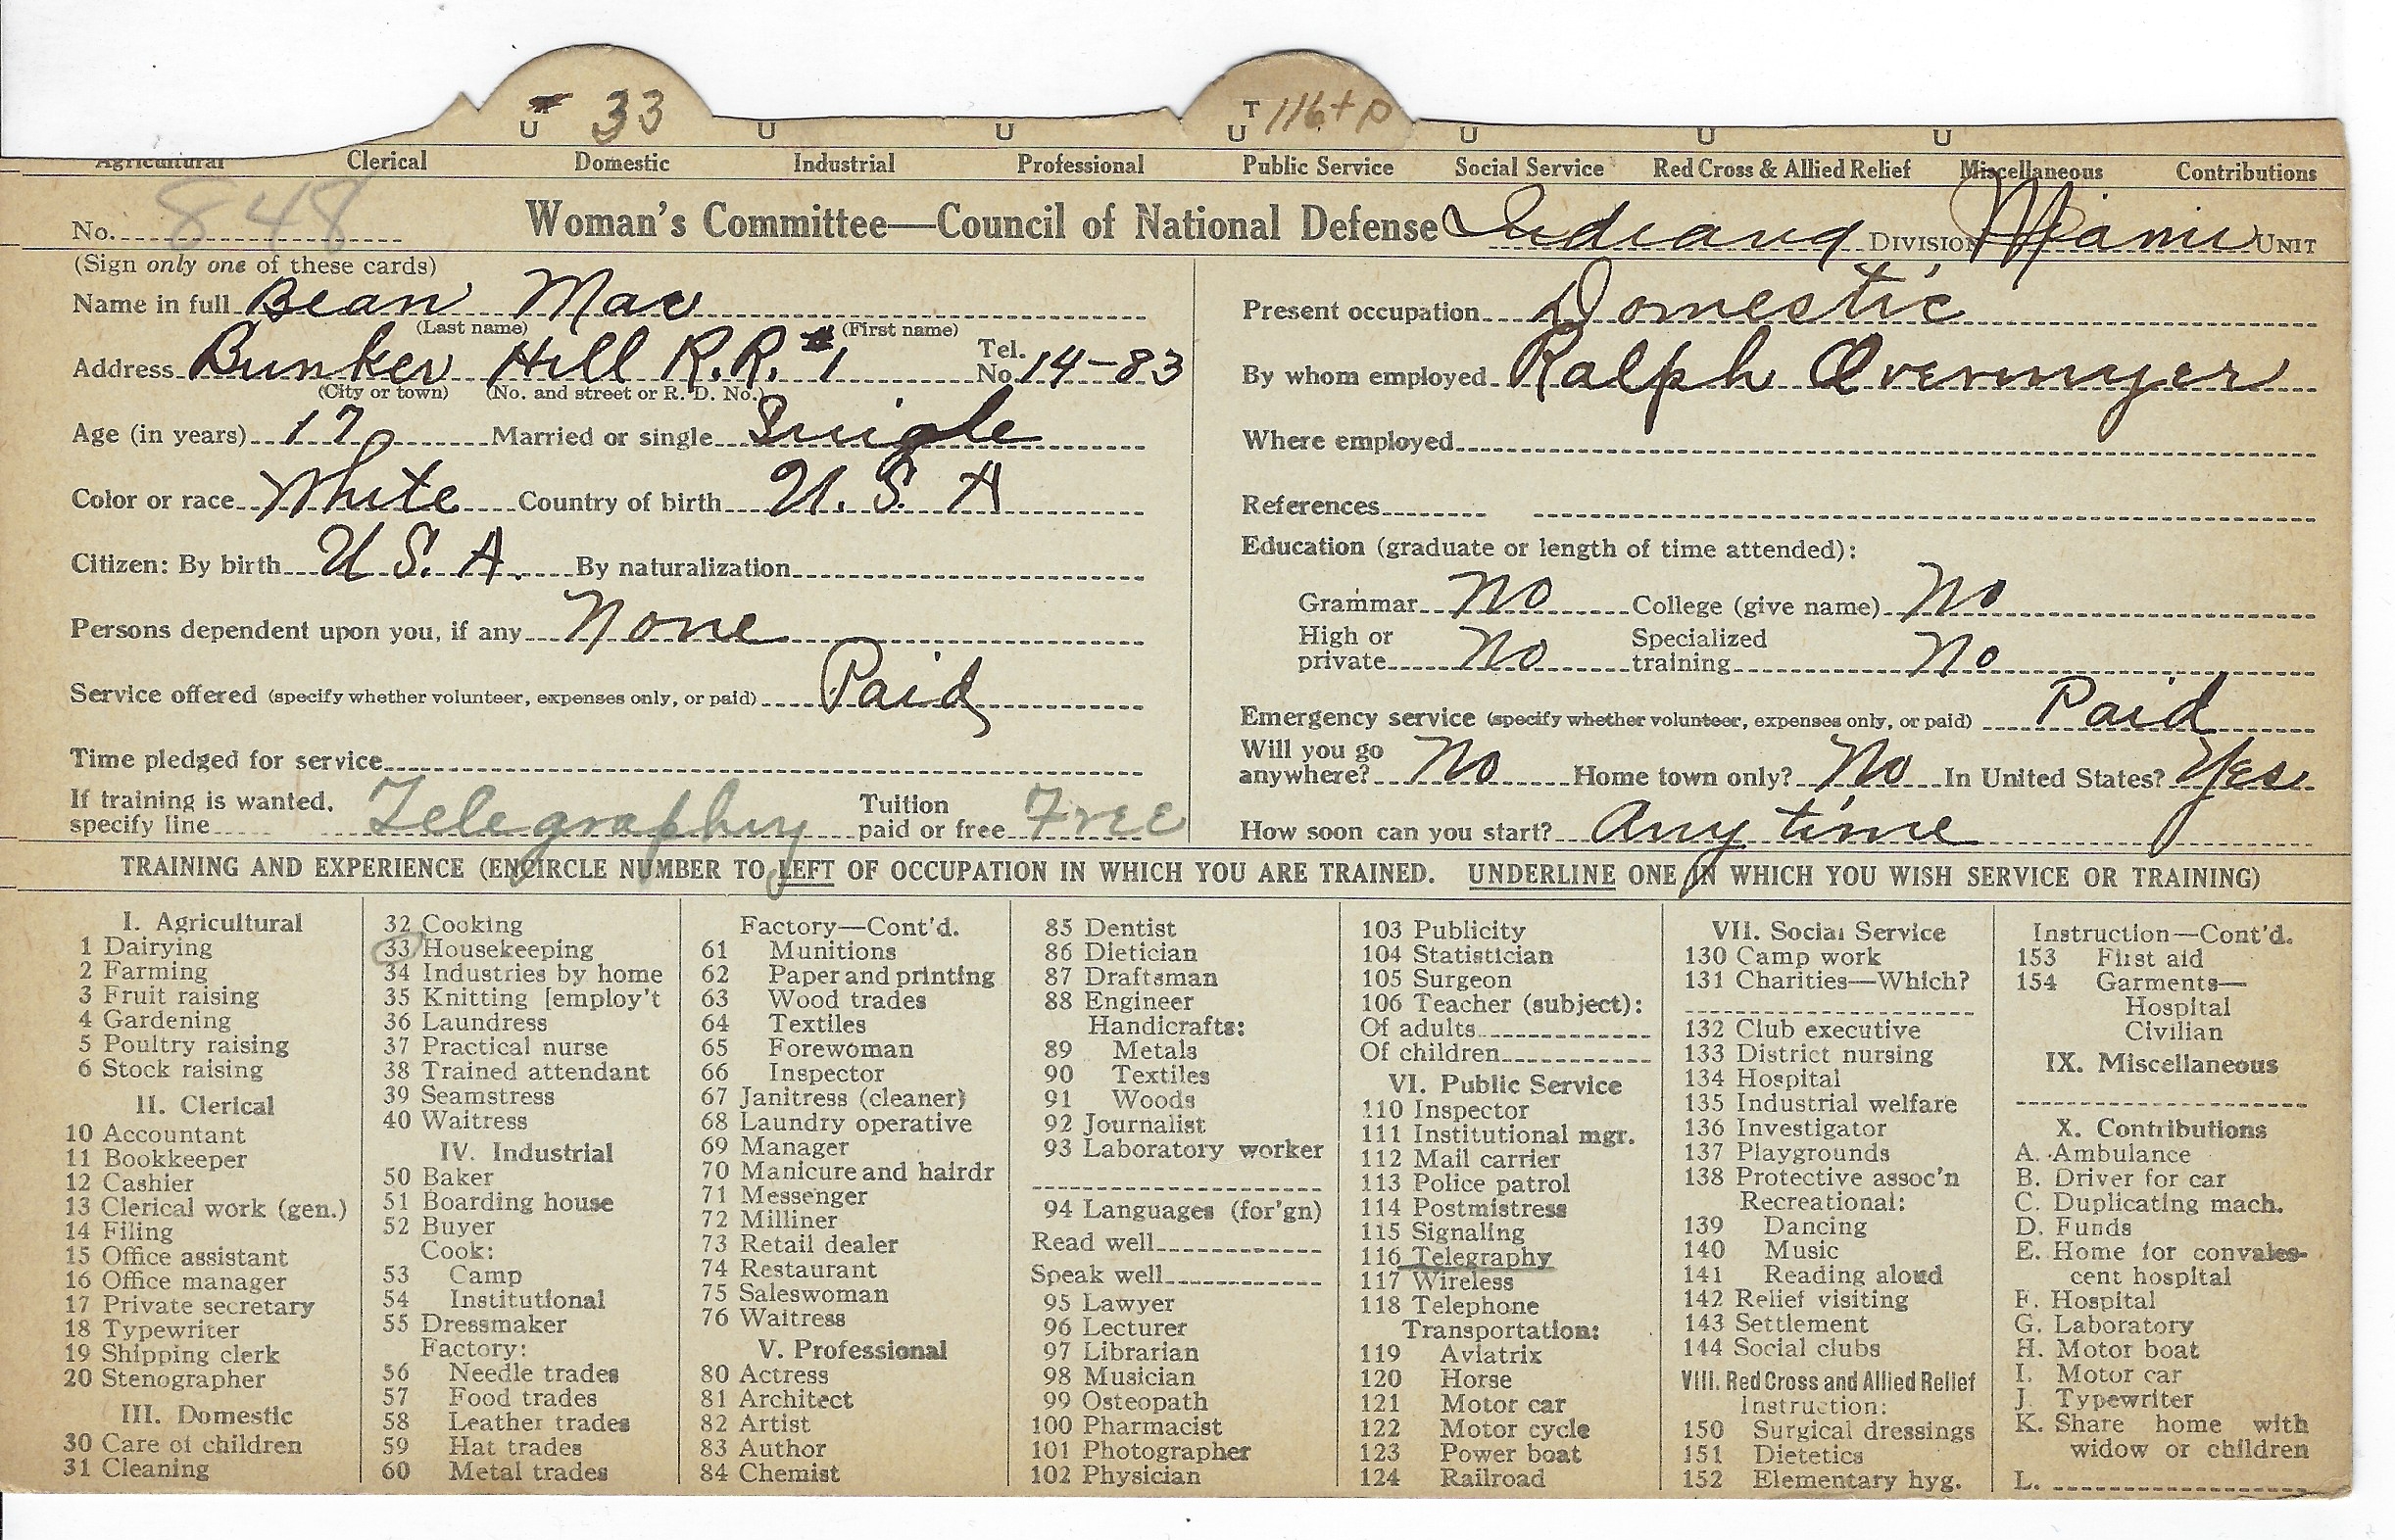 33 T 116+P
U U U U U U U
Agricultural Clerical Domestic Industrial Professional Public Service Social Service Red Cross & Allied Relief Miscellaneous Contributions
No. 848 Woman's Committee—Council of National Defense Indiana DIVISION Miami UNIT
(Sign only one of these cards)
Name in full Bean Mae
(Last name) (First name)
Address Bunker Hill R.R. #1 Tel. No. 14-83
(City or town) (No. and street or R. D. No.)
Age (in years) 17 Married or single Single
Color or race White Country of birth U. S. A
Citizen: By birth U S. A. By naturalization
Persons dependent upon you, if any None
Service offered (specify whether volunteer, expenses only, or paid) Paid
Time pledged for service
If training is wanted, specify line Telegraphy Tuition paid or free Free
Present occupation Domestic
By whom employed Ralph Overmyer
Where employed
References
Education (graduate or length of time attended):
Grammar No College (give name) No
High or private No Specialized training No
Emergency service (specify whether volunteer, expenses only, or paid) Paid
Will you go anywhere? No Home town only? No In United States? Yes
How soon can you start? Any time
TRAINING AND EXPERIENCE (ENCIRCLE NUMBER TO LEFT OF OCCUPATION IN WHICH YOU ARE TRAINED. UNDERLINE ONE IN WHICH YOU WISH SERVICE OR TRAINING)
I. Agricultural
1 Dairying
2 Farming
3 Fruit raising
4 Gardening
5 Poultry raising
6 Stock raising
II. Clerical
10 Accountant
11 Bookkeeper
12 Cashier
13 Clerical work (gen.)
14 Filing
15 Office assistant
16 Office manager
17 Private secretary
18 Typewriter
19 Shipping clerk
20 Stenographer
III. Domestic
30 Care of children
31 Cleaning
32 Cooking
33 Housekeeping
34 Industries by home
35 Knitting [employ't
36 Laundress
37 Practical nurse
38 Trained attendant
39 Seamstress
40 Waitress
IV. Industrial
50 Baker
51 Boarding house
52 Buyer
Cook:
53 Camp
54 Institutional
55 Dressmaker
Factory:
56 Needle trades
57 Food trades
58 Leather trades
59 Hat trades
60 Metal trades
Factory—Cont'd.
61 Munitions
62 Paper and printing
63 Wood trades
64 Textiles
65 Forewoman
66 Inspector
67 Janitress (cleaner)
68 Laundry operative
69 Manager
70 Manicure and hairdr
71 Messenger
72 Milliner
73 Retail dealer
74 Restaurant
75 Saleswoman
76 Waitress
V. Professional
80 Actress
81 Architect
82 Artist
83 Author
84 Chemist
85 Dentist
86 Dietician
87 Draftsman
88 Engineer
Handicrafts:
89 Metals
90 Textiles
91 Woods
92 Journalist
93 Laboratory worker
94 Languages (for'gn)
Read well
Speak well
95 Lawyer
96 Lecturer
97 Librarian
98 Musician
99 Osteopath
100 Pharmacist
101 Photographer
102 Physician
103 Publicity
104 Statistician
105 Surgeon
106 Teacher (subject):
Of adults
Of children
VI. Public Service
110 Inspector
111 Institutional mgr.
112 Mail carrier
113 Police patrol
114 Postmistress
115 Signaling
116 Telegraphy
117 Wireless
118 Telephone
Transportation:
119 Aviatrix
120 Horse
121 Motor car
122 Motor cycle
123 Power boat
124 Railroad
VII. Social Service
130 Camp work
131 Charities—Which?
132 Club executive
133 District nursing
134 Hospital
135 Industrial welfare
136 Investigator
137 Playgrounds
138 Protective assoc'n
Recreational:
139 Dancing
140 Music
141 Reading aloud
142 Relief visiting
143 Settlement
144 Social clubs
VIII. Red Cross and Allied Relief
Instruction:
150 Surgical dressings
151 Dietetics
152 Elementary hyg.
Instruction—Cont'd.
153 First aid
154 Garments—
Hospital
Civilian
IX. Miscellaneous
X. Contributions
A. Ambulance
B. Driver for car
C. Duplicating mach.
D. Funds
E. Home for convales-
cent hospital
F. Hospital
G. Laboratory
H. Motor boat
I. Motor car
J. Typewriter
K. Share home with
widow or children
L.